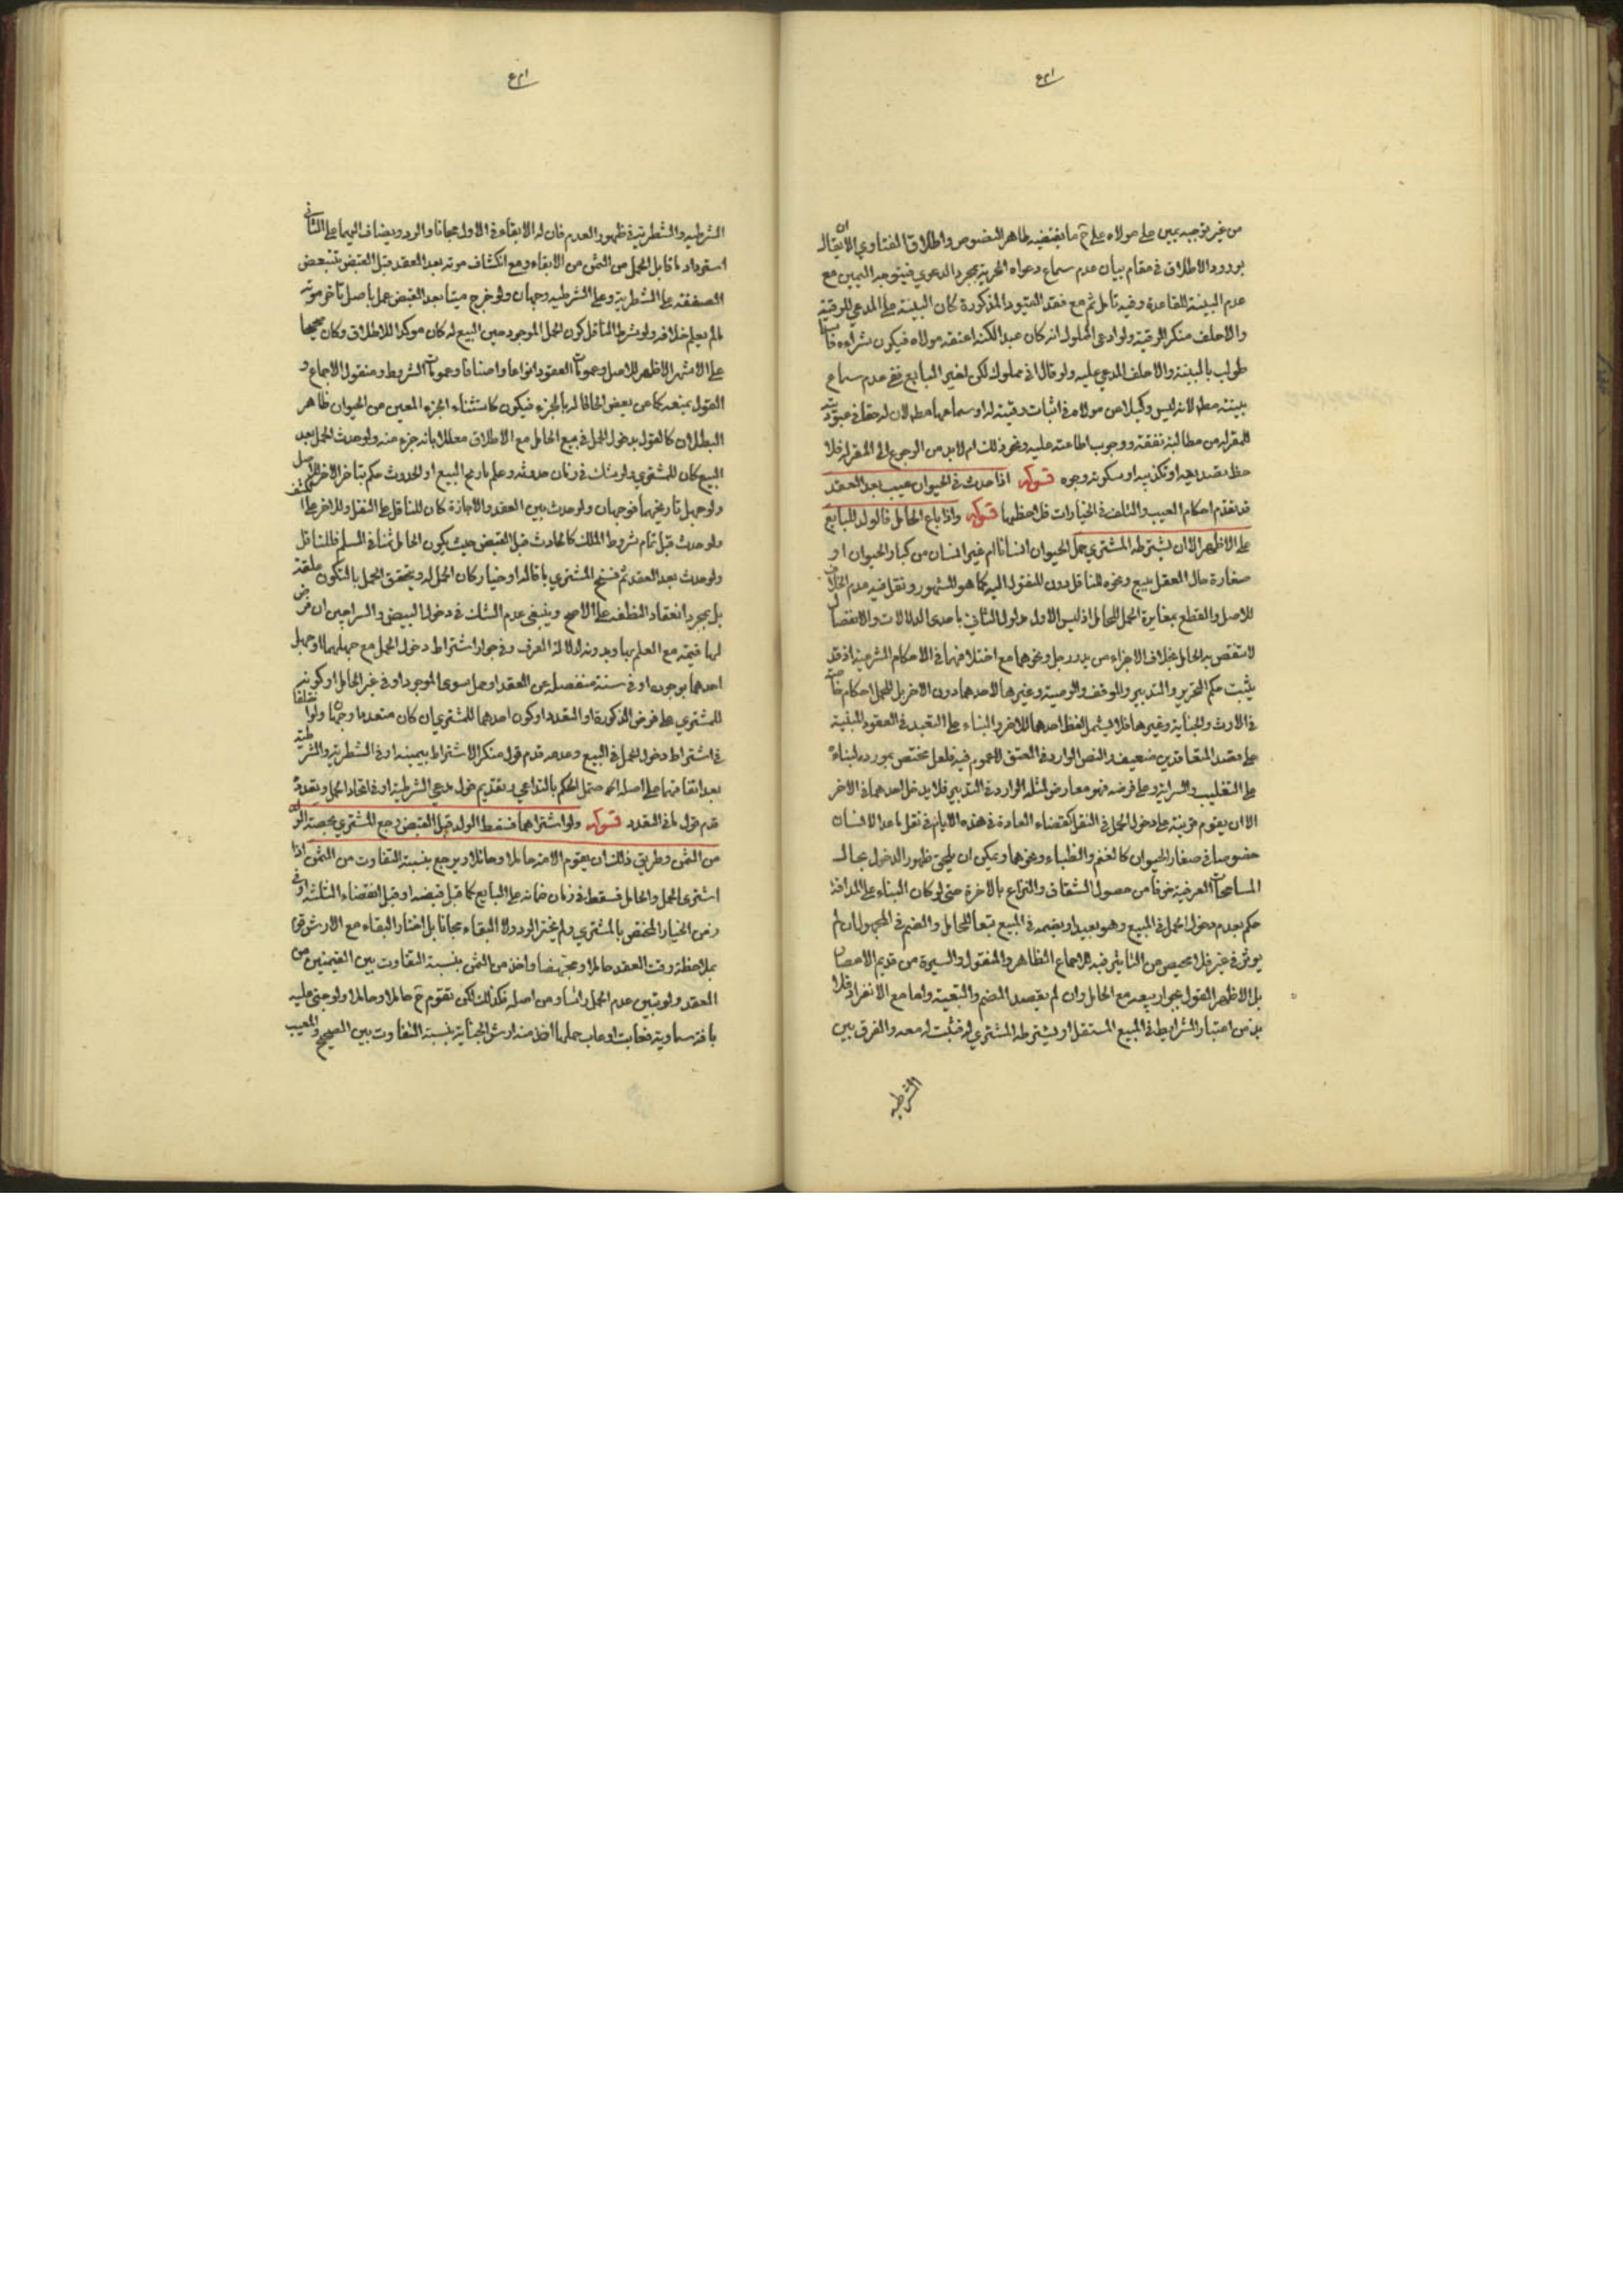 من غير توجيه يمين على مولاه على ح ما يقتضيه ظاهر النصوص واطلاق الفتاوي الا ان يقال
بورود الاطلاق في مقام بيان عدم سماع دعواه الحرية بمجرد الدعوى فيتوجه اليمين مع
عدم البينة للقاعدة وفيه تامل ثم مع فقد القيود المذكورة كان البينة على المدعي للرقية
والا حلف منكر الرقية ولو ادعى المملوك انه كان عبدا لكنه اعتقه مولاه فيكون شراءه
طولب بالبينة والا حلف المدعي عليه ولو قال اني مملوك لكن لغير البايع ففي عدم سماع
بينته مط لانه ليس وكيلا عن مولاه في اثبات رقيته له او سماعها مط لان له حقا في
للمقر له من مطالبة نفقته ووجوب اطاعته عليه ونحو ذلك ام لابد من الرجوع الى المقر له فلا
حظ بتصديقه او تكذيبه او سكوته وجوه قوله اذا حدث في الحيوان عيب بعد العقد
قد تقدم احكام العيب والتلف في الخيارات فلاحظها قوله واذا باع الحامل فالولد للبايع
على الاظهر الا ان يشترطه المشتري حمل الحيوان انسانا ام غير انسان من كبار الحيوان او
صغاره حال العقل ببيع ونحوه للناقل دون المنقول اليه كما هو المشهور ونقل فيه عدم الخلاف
للاصل والقطع بمغايرة الحمل للحامل اذ ليس الاول مدلولا للثاني باحدى الدلالات والانفصال
لا ينقص به الحامل بخلاف الاجزاء من يد ورجل ونحوهما مع اختلافهما في الاحكام الشرعية اذ قد
يثبت حكم التحرير والتدبير والوقف والوصية وغيرها لاحدهما دون الاخر بل للحمل احكام خاصة
في الارث والجناية وغيرها فلا يشمل لفظ احدهما للاخر والبناء على التعبد في العقود المبنية
على مقصد المتعاقدين ضعيف والنص الوارد في العتق لا عموم فيه فلعل يختص بمورده لبناءه
على التغليب والسراية وعلى فرضه فهو معارض لمثله الوارد في التدبير فلا يدخل احدهما في الاخر
الا ان يقوم قرينة على دخول الحمل في النقل كقضاء العادة في هذه الايام في نقل ما عدا الانسان
خصوصا في صغار الحيوان كالغنم والظباء ونحوهما ويمكن ان يلحق ظهور الدخول بحال
المسامحات العرفية خوفا من حصول الشقاق والنزاع بالاخرة حتى لو كان البناء على المداقة
حكم بعدم دخول الحمل في المبيع وهو بعيد او بضمه في المبيع تبعا للحامل والضم في المجهول ان لم
يؤثر في غيره فلا محيص من التاثير فيه للاجماع الظاهر والمنقول والسيرة من قديم الاعصار
بل الاظهر القول بجواز بيعه مع الحامل وان لم يقصد الضم والتبعية واما مع الانفراد فلا
بد من اعتبار الشرايط في المبيع المستقل او يشترطه المشتري له فيثبت له معه والفرق بين
الشرطيه
الشرطيه والشطرية في ظهور العدم فان له الابقاء في الاول مجانا والرد ويضاف اليهما على الثاني
استرداد ما قابل الحمل من الثمن من الابقاء ومع انكشاف موته بعد العقد قبل القبض تتبعض
الصفقة على الشطرية وعلى الشرطيه وجهان ولو خرج ميتا بعد القبض عمل باصل تاخر موته
ما لم يعلم خلافه ولو شرط الناقل كون الحمل الموجود حين البيع له كان موكدا للاطلاق وكان صحيحا
على الاشهر الاظهر للاصل وعمومات العقود انواعا واصنافا وعمومات الشروط ومنقول الاجماع و
القول بمنعه كما عن بعض الحاقا له بالجزء فيكون كاستثناء الجزء المعين من الحيوان ظاهر
البطلان كالقول بدخول الحمل في بيع الحامل مع الاطلاق معللا بانه جزء منه ولو حدث الحمل بعد
البيع كان للمشتري ولو شك في زمان حدوثه وعلم تاريخ البيع او الحدوث حكم بتاخر الاخر للاصل
ولو جهل تاريخهما فوجهان ولو حدث بين العقد والاجازة كان للناقل على النقل وللاخر على الكشف
ولو حدث قبل تمام شروط الملك كالحادث قبل القبض حيث يكون الحامل ثمنا في السلم فللناقل
ولو حدث بعد العقد ثم فسخ المشتري باقالة او خيار كان الحمل له ويتحقق الحمل بالتكون علقة
بل بمجرد انعقاد النطفه على الاصح وينبغي عدم الشك في دخول البيض والسراجين ان فرض
لها قيمة مع العلم بها وبدونه لدلالة العرف وفي جواز اشتراط دخول الحمل مع جهلهما او جهل
احدهما بوجوده او في سنة منفصلة عن العقد او حمل سوى الموجود او في غير الحامل او كونه
للمشتري على فرض المذكورة او التعدد او كون احدهما للمشتري ان كان متعددا وجها ولو اختلفا
في اشتراط دخول الحمل في المبيع وعدمه قدم قول منكر الاشتراط بيمينه او في الشطرية والشرطية
بعد اتفاقهما على اصله احتمل الحكم بالتداعي وتقديم قول مدعي الشرطية او في اتحاد الحمل وتعدده
قدم قول نافي التعدد قوله ولو اشتراهما فسقط الولد قبل القبض رجع المشتري بحصة الولد
من الثمن وطريق ذلك ان يقوم الامه حاملا وحائلا ويرجع بنسبة التفاوت من الثمن اذا
اشترى الحمل والحامل فسقط في زمان ضمانه على البايع كما قبل قبضه او قبل انقضاء الثلثة او في
زمن الخيار المختص بالمشتري ولم يختر الرد ولا البقاء مجانا بل اختار البقاء مع الارش قوم
بملاحظة وقت العقد حاملا ومجهضا واخذ من الثمن بنسبة التفاوت بين القيمتين من
العقد ولو تبين عدم الحمل راسا ومن اصله فكذلك لكن تقوم ح حاملا وحائلا ولو جنى عليه
بافة سماوية فعابت او عاب حملها اخذ منه ارش الجناية بنسبة التفاوت بين الصحيح والمعيب